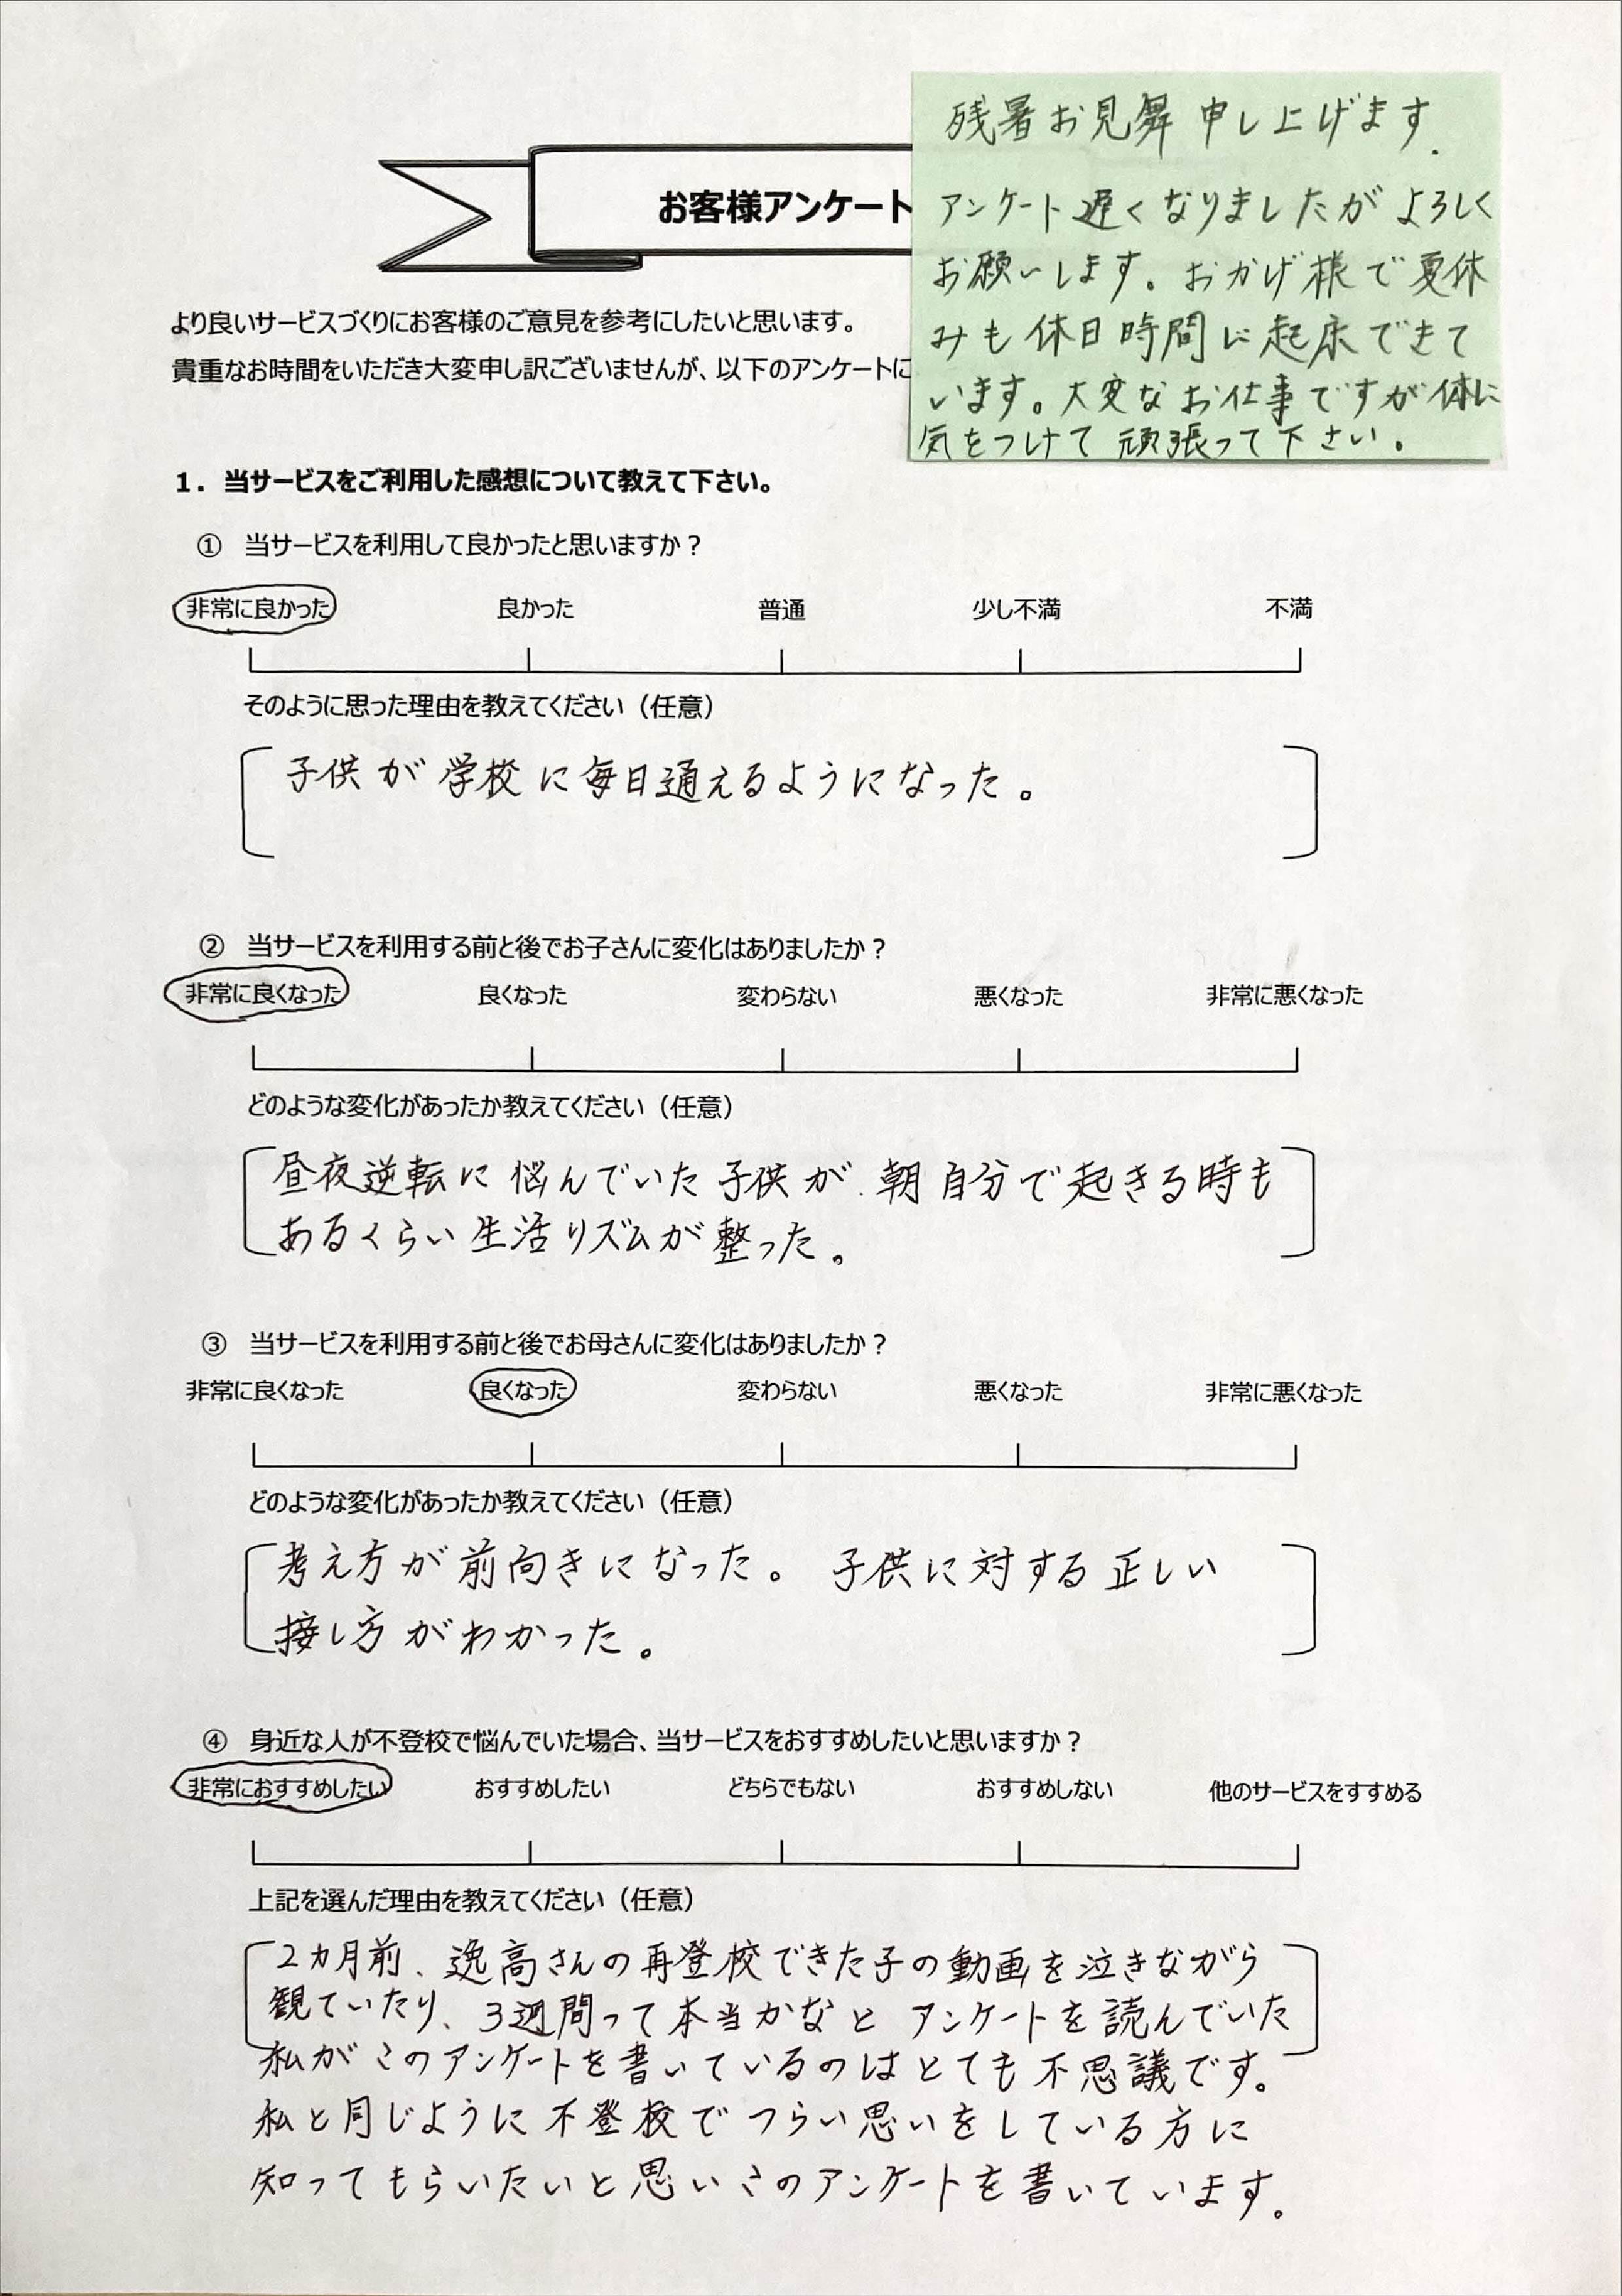 お客様アンケート
残暑お見舞申し上げます.
アンケート遅くなりましたがよろしく
お願いします。おかげ様で夏休
みも休日時間に起床できて
います。大変なお仕事ですが体に
気をつけて頑張って下さい。
より良いサービスづくりにお客様のご意見を参考にしたいと思います。
貴重なお時間をいただき大変申し訳ございませんが、以下のアンケートに
1. 当サービスをご利用した感想について教えて下さい。
① 当サービスを利用して良かったと思いますか？
非常に良かった 良かった 普通 少し不満 不満
そのように思った理由を教えてください（任意）
子供が学校に毎日通えるようになった。
② 当サービスを利用する前と後でお子さんに変化はありましたか？
非常に良くなった 良くなった 変わらない 悪くなった 非常に悪くなった
どのような変化があったか教えてください（任意）
昼夜逆転に悩んでいた子供が、朝自分で起きる時も
あるくらい生活リズムが整った。
③ 当サービスを利用する前と後でお母さんに変化はありましたか？
非常に良くなった 良くなった 変わらない 悪くなった 非常に悪くなった
どのような変化があったか教えてください（任意）
考え方が前向きになった。子供に対する正しい
接し方がわかった。
④ 身近な人が不登校で悩んでいた場合、当サービスをおすすめしたいと思いますか？
非常におすすめしたい おすすめしたい どちらでもない おすすめしない 他のサービスをすすめる
上記を選んだ理由を教えてください（任意）
2カ月前、逸高さんの再登校できた子の動画を泣きながら
観ていたり、3週間って本当かなと アンケートを読んでいた
私がこのアンケートを書いているのはとても不思議です。
私と同じように不登校でつらい思いをしている方に
知ってもらいたいと思いこのアンケートを書いています。